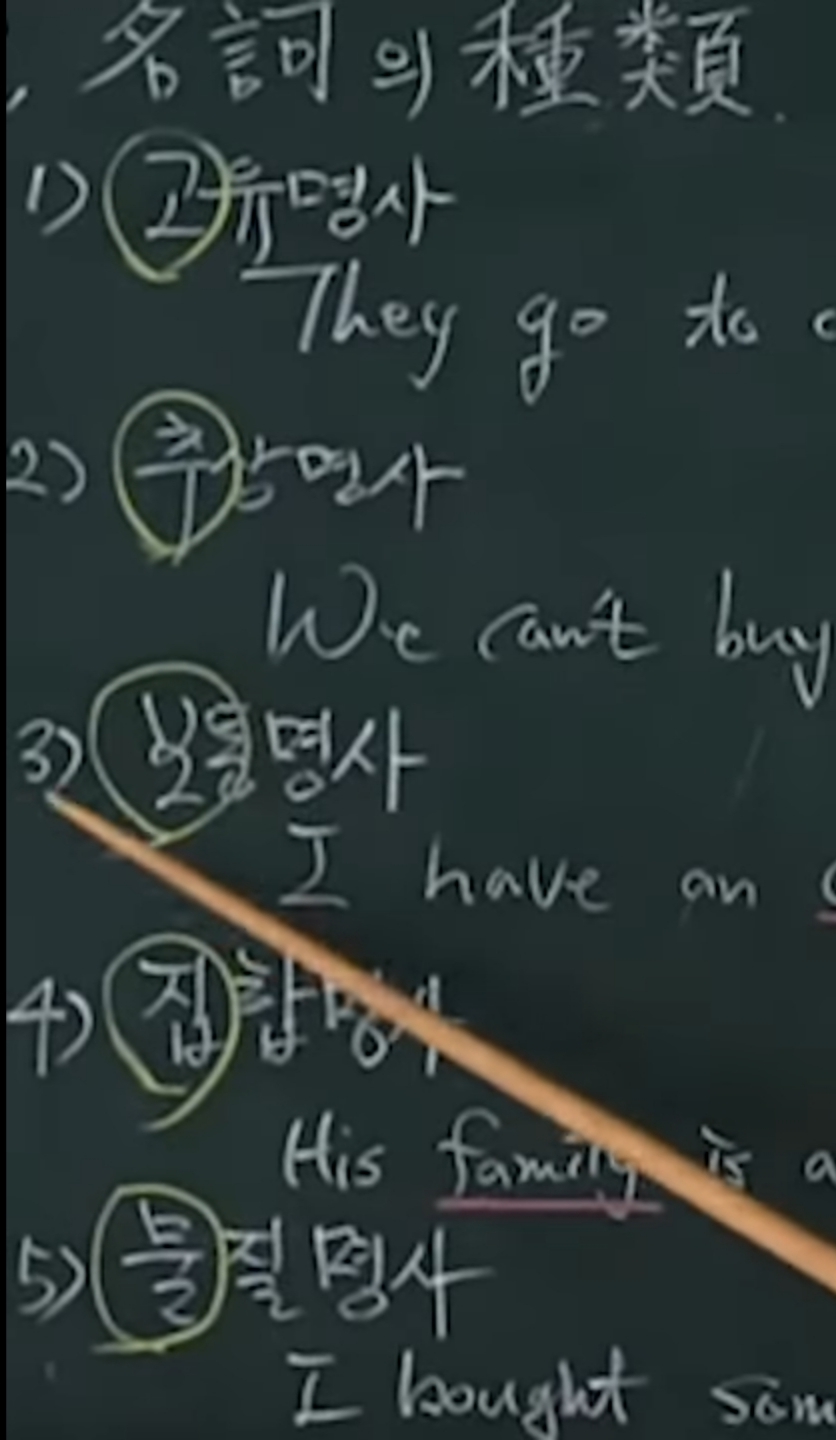 名詞의 種類.
1) 고유명사
They go to
2) 추상명사
We can't buy
3) 보통명사
I have an
4) 집합명사
His family is a
5) 물질명사
I bought som